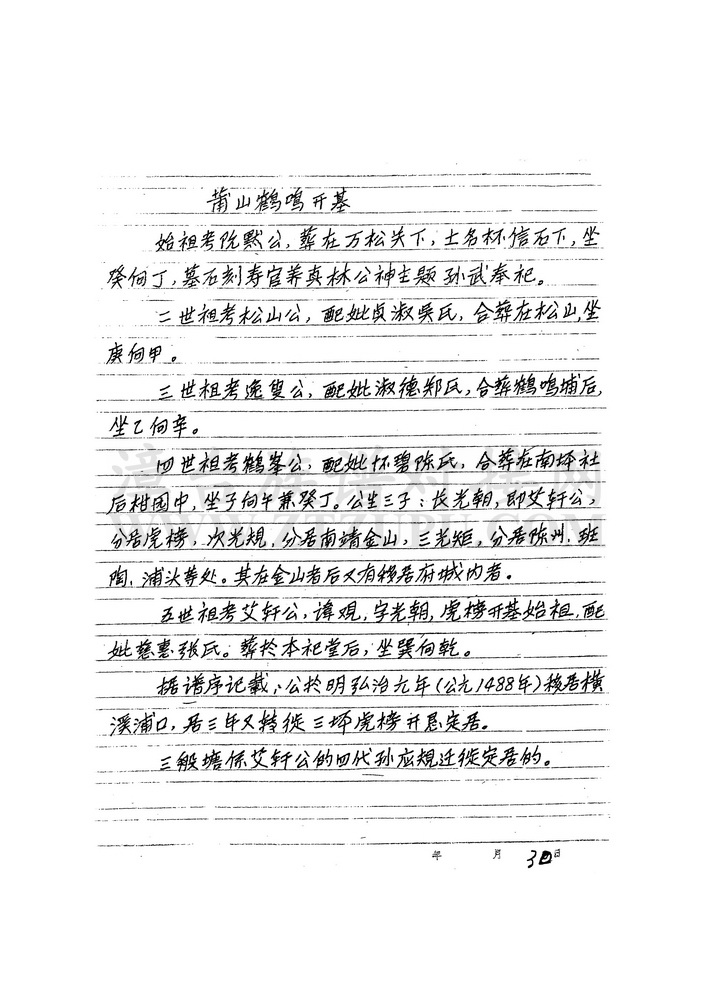 莆山鹤鸣开基
始祖考阮默公，葬在万松关下，土名杯信石下，坐
癸向丁，墓石刻寿官养真林公神主题孙武奉祀。
二世祖考松山公，配妣贞淑吴氏，合葬在松山，坐
庚向甲。
三世祖考逸叟公，配妣淑德郑氏，合葬鹤鸣埔后，
坐乙向辛。
四世祖考鹤峯公，配妣怀碧陈氏，合葬在南坪社
后柑园中，坐子向午兼癸丁。公生三子：长光朝，即艾轩公，
分居虎榜，次光規，分居南靖金山，三光矩，分居陈州、班
陶、浦头等处。其在金山者后又有移居府城内者。
五世祖考艾轩公，諱观，字光朝，虎榜开基始祖，配
妣慈惠张氏。葬於本祀堂后，坐巽向乾。
据谱序记载，公於明弘治元年（公元1488年）移居横
溪浦口，居三年又转徙三坪虎榜开居定居。
三级塘係艾轩公的四代孙应規迁徙定居的。
年 月 30日
漳台族谱对接网
WWW.ZTZUPU.COM